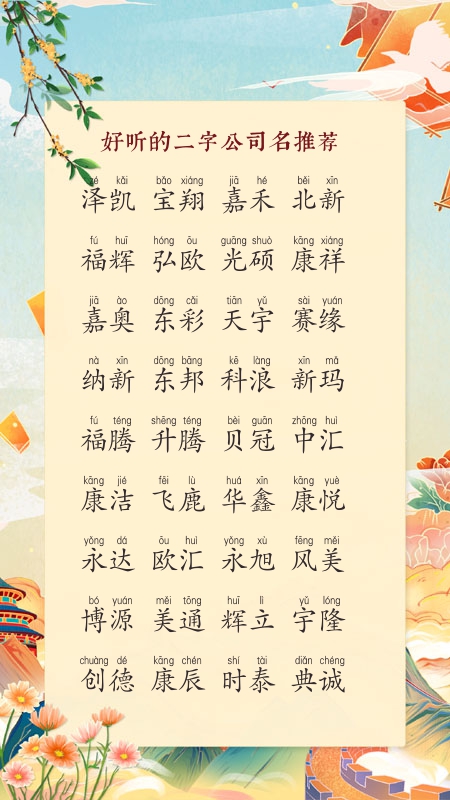 好听的二字公司名推荐
zé kǎi bǎo xiáng jiā hé běi xīn
泽凯 宝翔 嘉禾 北新
fú huī hóng ōu guāng shuò kāng xiáng
福辉 弘欧 光硕 康祥
jiā ào dōng cǎi tiān yǔ sài yuán
嘉奥 东彩 天宇 赛缘
nà xīn dōng bāng kē làng xīn mǎ
纳新 东邦 科浪 新玛
fú téng shēng téng bèi guān zhōng huì
福腾 升腾 贝冠 中汇
kāng jié fēi lù huá xīn kāng yuè
康洁 飞鹿 华鑫 康悦
yǒng dá ōu huì yǒng xù fēng měi
永达 欧汇 永旭 风美
bó yuán měi tōng huī lì yǔ lóng
博源 美通 辉立 宇隆
chuàng dé kāng chén shí tài diǎn chéng
创德 康辰 时泰 典诚